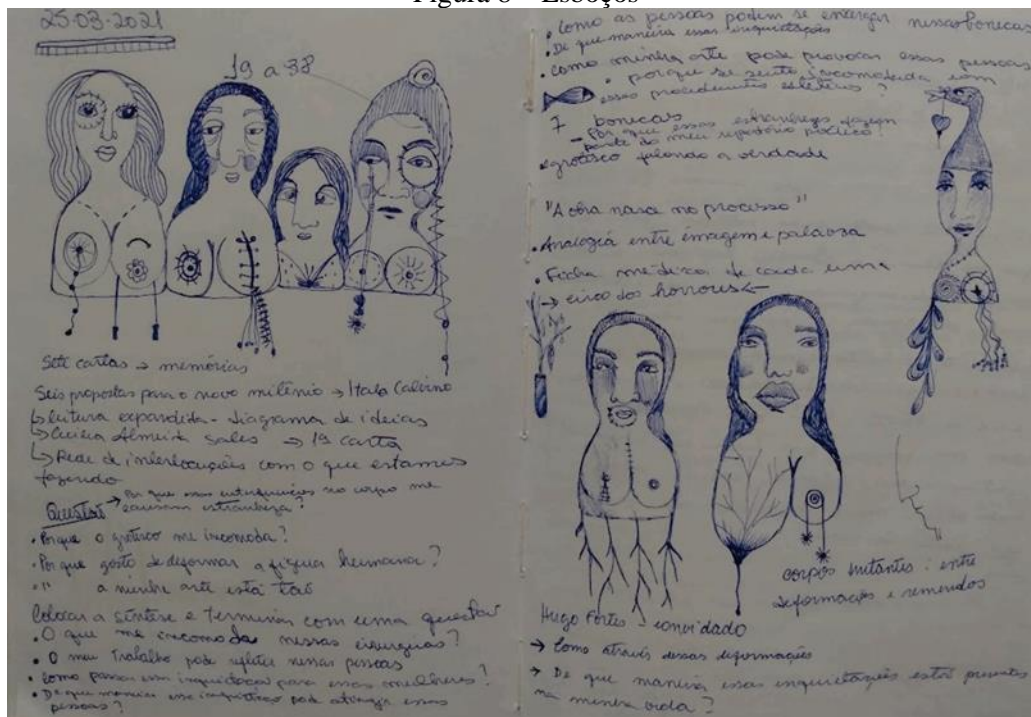 Figura 8 – Esboços
25-03-2021
19 a 38
Sete cartas → memórias
Seis propostas para o novo milênio → Italo Calvino
↳ leitura expandida - diagrama de ideias
↳ Almeida Sales → 19 carta
↳ Rede de interlocuções com o que estamos
fazendo
Questão → Por que essas no corpo me
causam estranheza?
• Porque o grotesco me incomoda?
• Por que gosto de deformar a figura humana?
• " a minha arte está tão
Colocar a síntese e terminar com uma questão
• O que me incomoda nessas cirurgias?
• O meu trabalho pode refletir nessas pessoas
• Como passar essa inquietação para essas mulheres?
• De que maneira essa pode atingir essas
pessoas?
• Como as pessoas podem se enxergar nessas bonecas
• De que maneira essas inquietações
• Como minha arte pode provocar essas pessoas
• porque se sente incomodada com
esses procedimentos estéticos?
7 bonecas
- Por que essas fazem
parte do meu repertório poético
grotesco falando a verdade
"A obra nasce no processo"
• Analogia entre imagem e palavra
• Ficha médica de cada uma
→ circo dos horrores ←
corpos mutantes: entre
deformações e remendos
Hugo Fortes - convidado
→ Como através dessas deformações
→ De que maneira essas inquietações estão presentes
na minha vida?